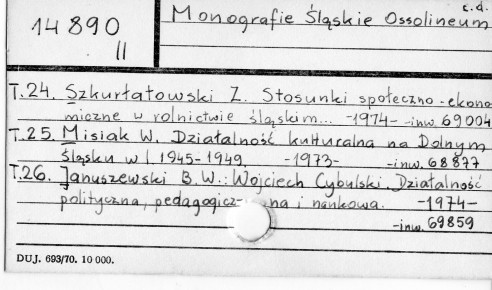 c.d.
14890
II
Monografie Śląskie Ossolineum
T.24. Szkurłatowski Z. Stosunki społeczno-ekono
miczne w rolnictwie śląskim... -1974- -inw. 69004
T.25. Misiak W. Działalność kulturalna na Dolnym
Śląsku w l. 1945-1949. -1973- -inw. 68877
T.26. Januszewski B.W.: Wojciech Cybulski. Działalność
polityczna, pedagogicz na i naukowa. -1974-
-inw. 69859
DUJ. 693/70. 10 000.